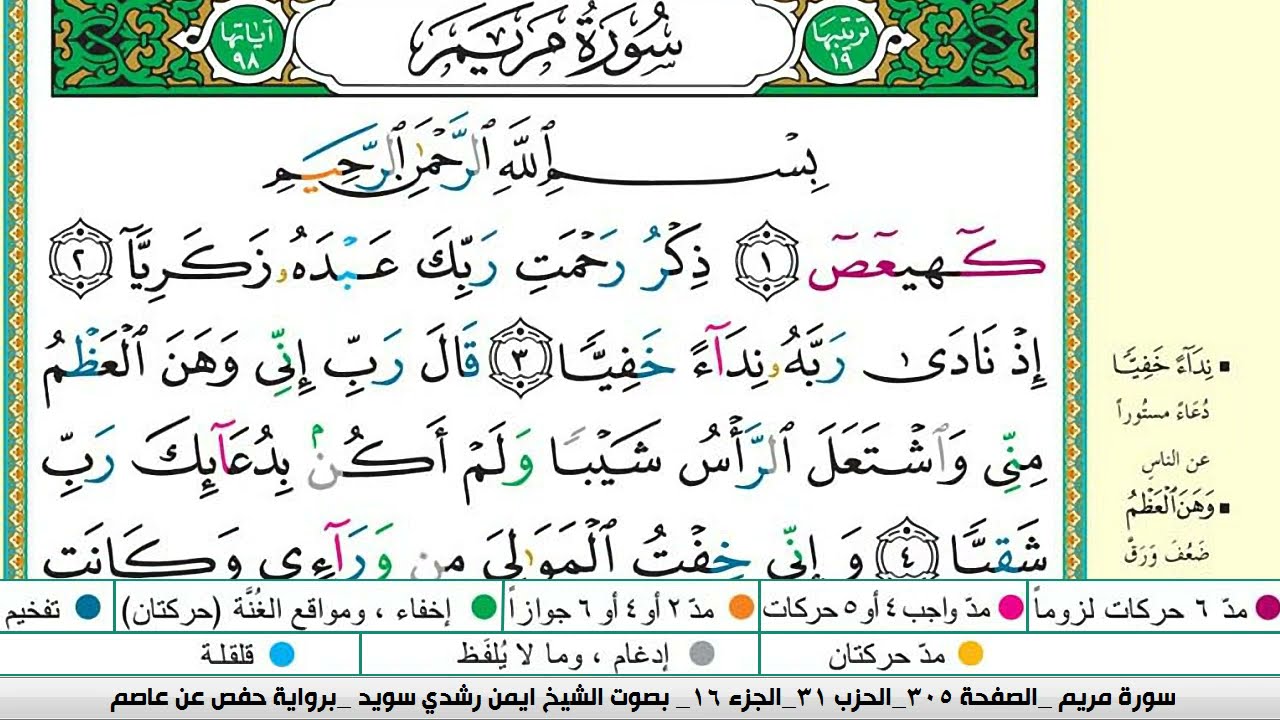 آياتها ٩٨ سُورَةُ مَرْيَمَ ترتيبها ١٩
بِسْمِ ٱللَّهِ ٱلرَّحْمَٰنِ ٱلرَّحِيمِ
كٓهيعٓصٓ ١ ذِكْرُ رَحْمَتِ رَبِّكَ عَبْدَهُۥ زَكَرِيَّآ ٢
إِذْ نَادَىٰ رَبَّهُۥ نِدَآءً خَفِيًّا ٣ قَالَ رَبِّ إِنِّى وَهَنَ ٱلْعَظْمُ
مِنِّى وَٱشْتَعَلَ ٱلرَّأْسُ شَيْبًا وَلَمْ أَكُنۢ بِدُعَآئِكَ رَبِّ
شَقِيًّا ٤ وَإِنِّى خِفْتُ ٱلْمَوَٰلِىَ مِن وَرَآءِى وَكَانَتِ
نِدَآءً خَفِيًّا
دُعَاءً مستُوراً
عن الناسِ
وَهَنَ ٱلْعَظْمُ
ضَعُفَ وَرَقَّ
مدّ ٦ حركات لزوماً مدّ واجب ٤ أو ٥ حركات مدّ ٢ أو ٤ أو ٦ جوازاً إخفاء ، ومواقع الغُنَّة (حركتان) تفخيم
مدّ حركتان إدغام ، وما لا يُلفَظ قلقلة
سورة مريم _الصفحة ٣٠٥_الحزب ٣١_الجزء ١٦_ بصوت الشيخ ايمن رشدي سويد _برواية حفص عن عاصم